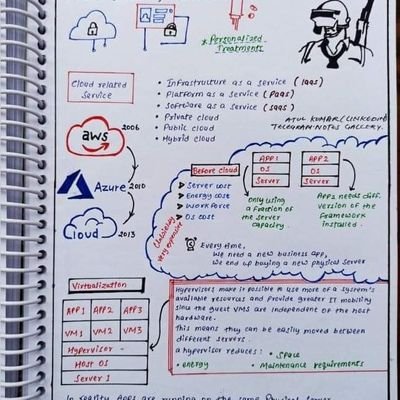 * Personalized
Treatments
Cloud related
Service
• Infrastructure as a service (Iaas)
• Platform as a service (Paas)
• Software as a service (Saas)
• Private cloud
• Public cloud
• Hybrid cloud
ATUL KUMAR (LINKEDIN)
TELEGRAM-NOTES GALLERY.
aws
2006
Azure
2010
Cloud
2013
Before cloud
Server cost
Energy cost
Workforce
OS cost
very expensive
APP1
OS
Server
APP2
OS
Server
only using
a portion of
the server
capacity.
APP2 needs diff.
version of the
Framework
installed.
Every time,
We need a new business app,
We end up buying a new physical server
Virtualization
APP1 APP2 APP3
VM1 VM2 VM3
Hypervisor
Host OS
Server 1
Hypervisors make it possible to use more of a system's
available resources and provide greater IT mobility
since the guest VMS are independent of the host
hardware.
This means they can be easily moved between
different servers.
a hypervisor reduces:
• Space
• energy
• Maintenance requirements
In reality Apps are running on the same Physical server